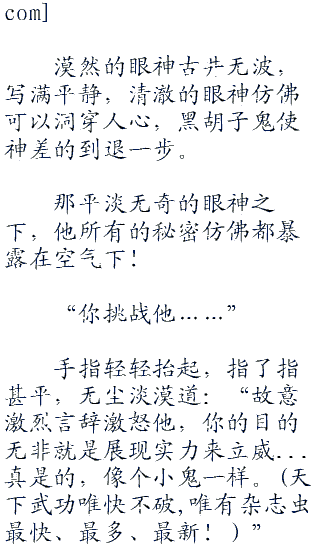 com]
漠然的眼神古井无波，
写满平静，清澈的眼神仿佛
可以洞穿人心，黑胡子鬼使
神差的到退一步。
那平淡无奇的眼神之
下，他所有的秘密仿佛都暴
露在空气下！
“你挑战他……”
手指轻轻抬起，指了指
甚平，无尘淡漠道：“故意
激烈言辞激怒他，你的目的
无非就是展现实力来立威...
真是的，像个小鬼一样。(天
下武功唯快不破,唯有杂志虫
最快、最多、最新！)”